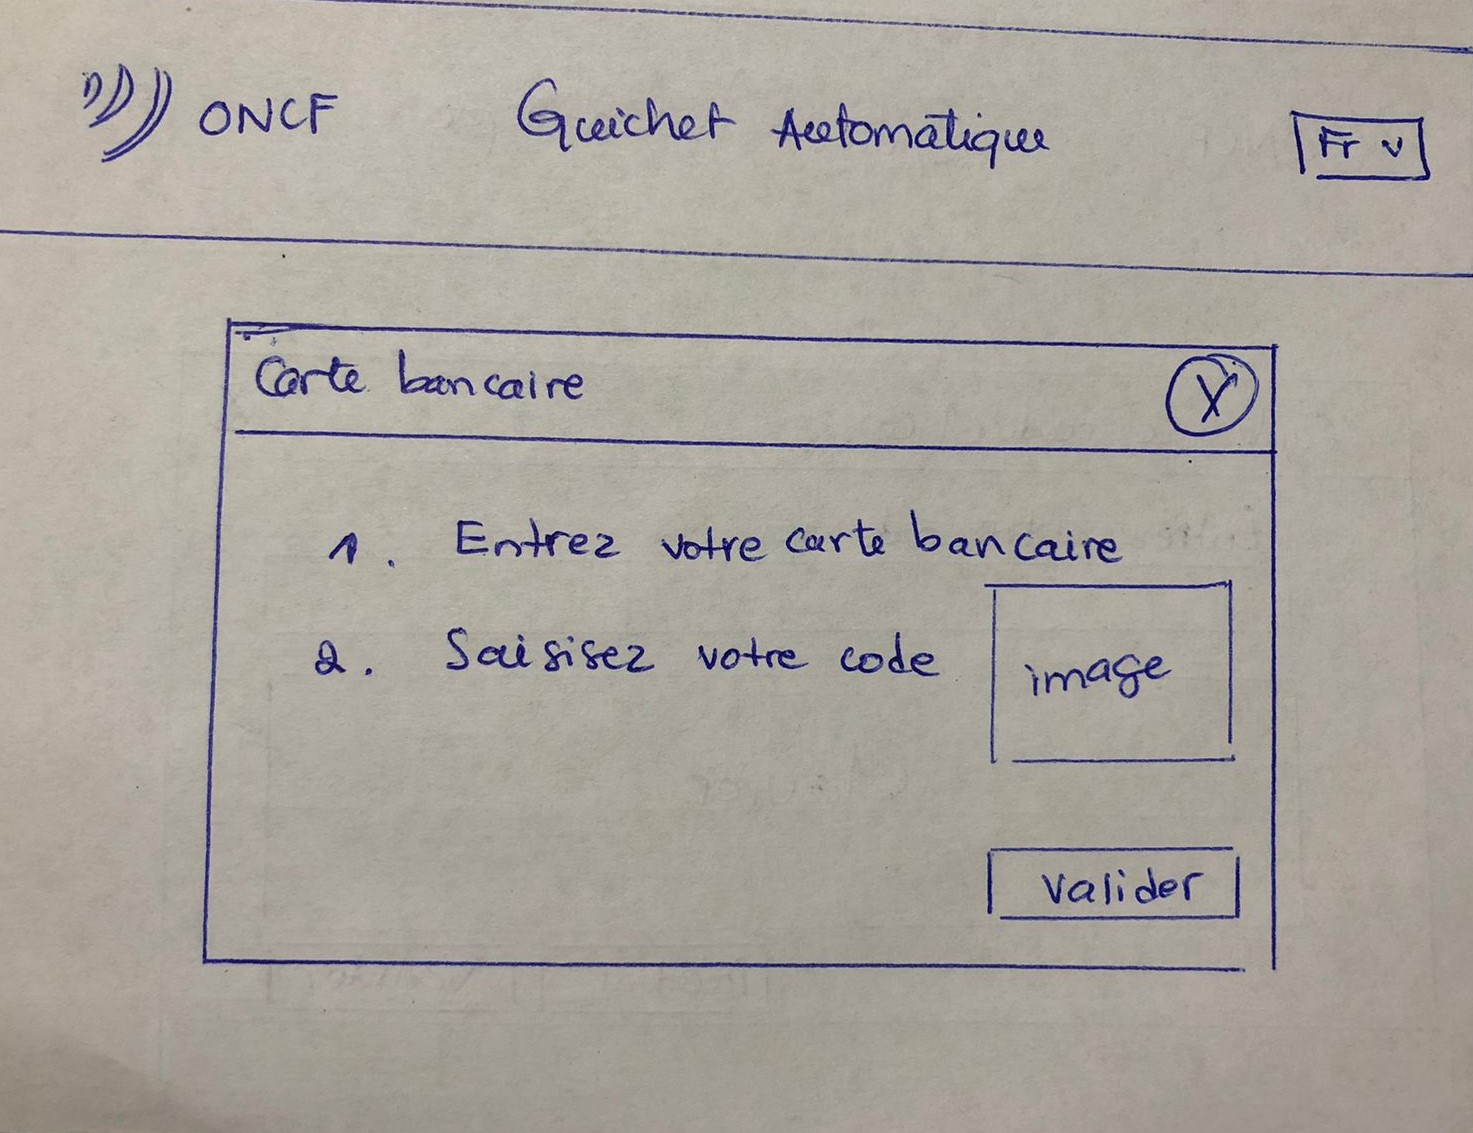 ONCF Guichet Automatique Fr v
Carte bancaire X
1. Entrez votre carte bancaire
2. Saisisez votre code
image
Valider